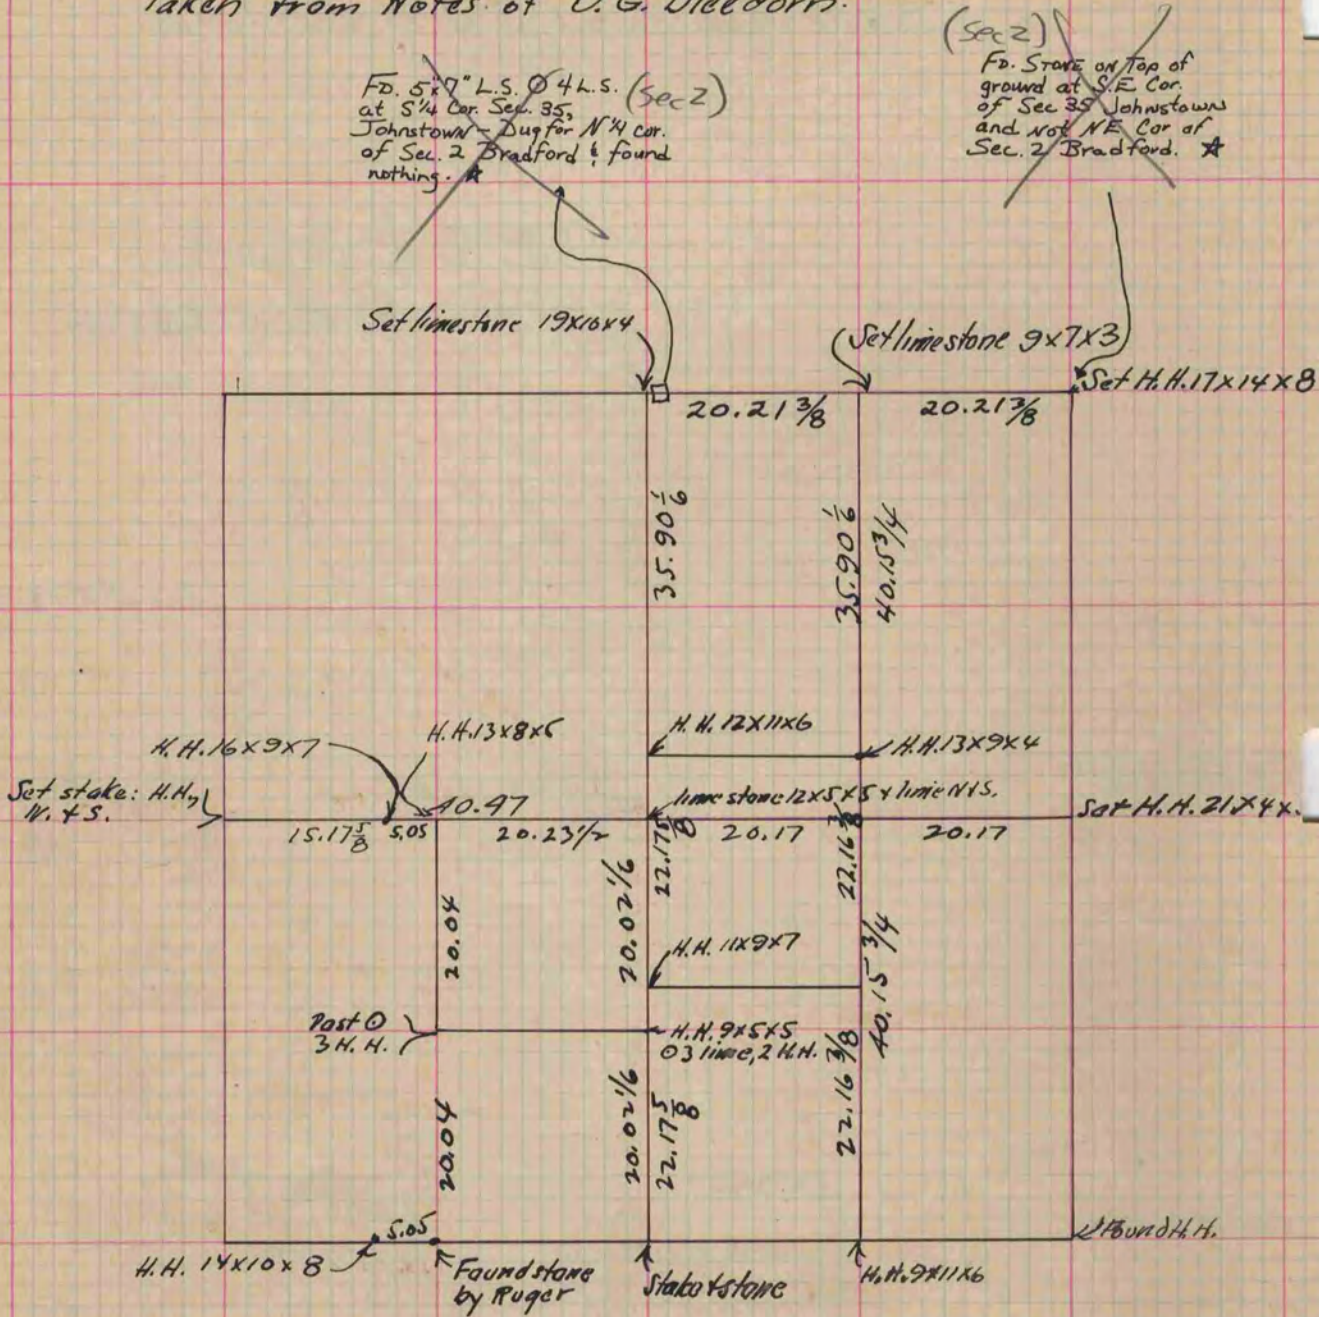 Taken from Notes of
(Sec 2)
FD. 5"x7" L.S. ⊙ 4 L.S. (Sec 2)
at S¼ Cor. Sec. 35,
Johnstown - Dug for N¼ cor.
of Sec. 2 Bradford & found
nothing. ☆
FD. STONE on Top of
ground at S.E Cor.
of Sec 35 Johnstown
and not NE Cor of
Sec. 2 Bradford. ☆
Set limestone 19x16x4
Set limestone 9x7x3
Set H.H. 17x14x8
20.21 3/8
20.21 3/8
35.90 1/6
35.90 1/6
40.15 3/4
H.H. 16x9x7
H.H. 13x8x6
H.H. 12x11x6
H.H. 13x9x4
Set stake: H.H.,
N. + S.
40.47
lime stone 12x5x5 + lime N+S.
Set H.H. 21x4x
15.17 5/8
5.05
20.23 1/2
20.17
20.17
22.17 5/8
22.16 3/8
20.04
20.02 1/6
H.H. 11x9x7
40.15 3/4
Post ⊙
3 H.H.
H.H. 9x5x5
⊙ 3 lime, 2 H.H.
20.04
20.02 1/6
22.17 5/8
22.16 3/8
5.05
H.H. 14x10x8
Found stone
by Ruger
Stake + stone
H.H. 9x11x6
Found H.H.